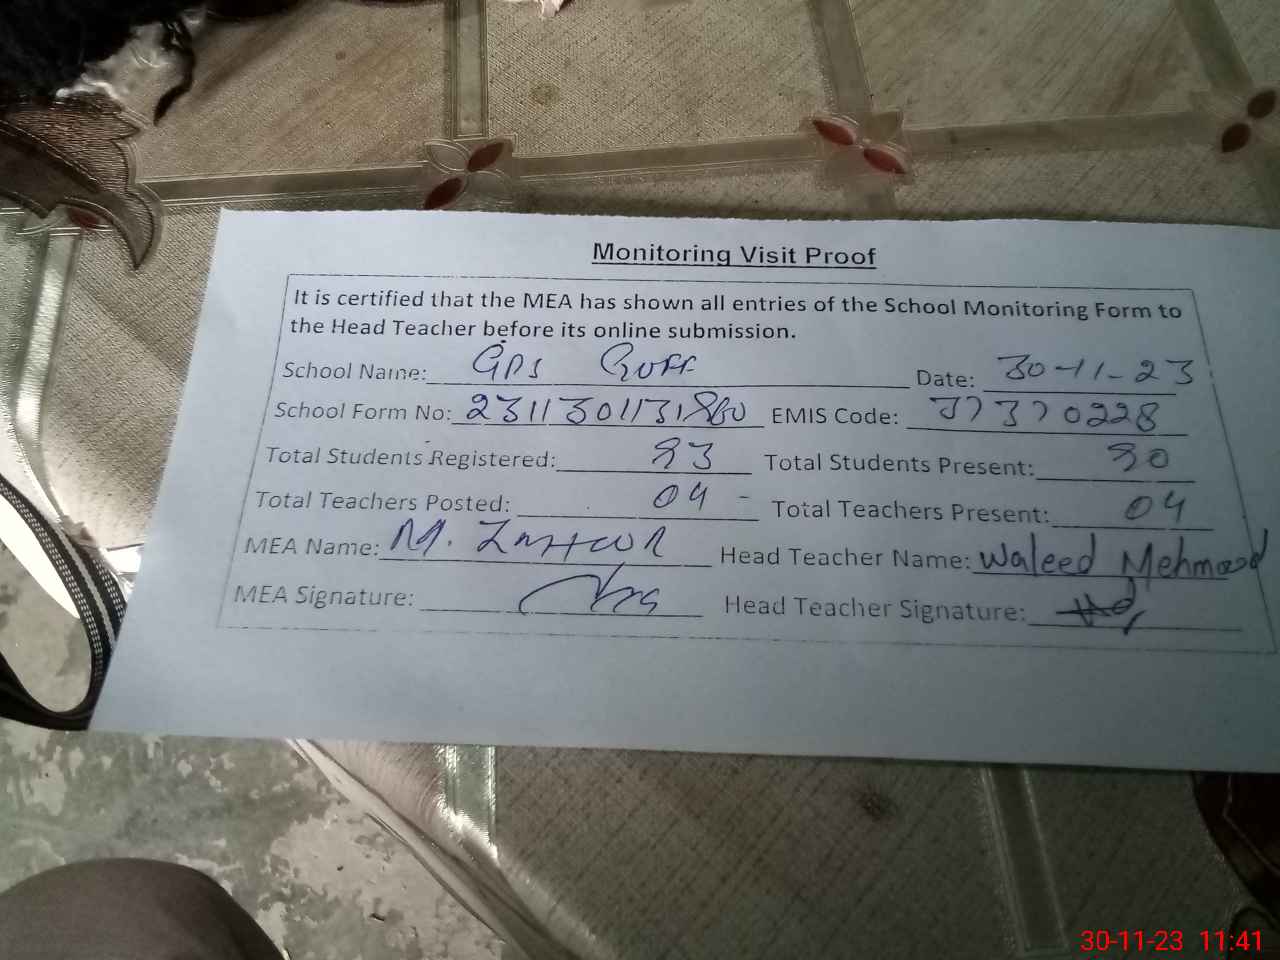 Monitoring Visit Proof
It is certified that the MEA has shown all entries of the School Monitoring Form to
the Head Teacher before its online submission.
School Name: GPS Date: 30-11-23
School Form No: EMIS Code: 37370228
Total Students Registered: 93 Total Students Present: 90
Total Teachers Posted: 04 Total Teachers Present: 04
MEA Name: M. Head Teacher Name: Waleed Mehmood
MEA Signature: Head Teacher Signature:
30-11-23 11:41